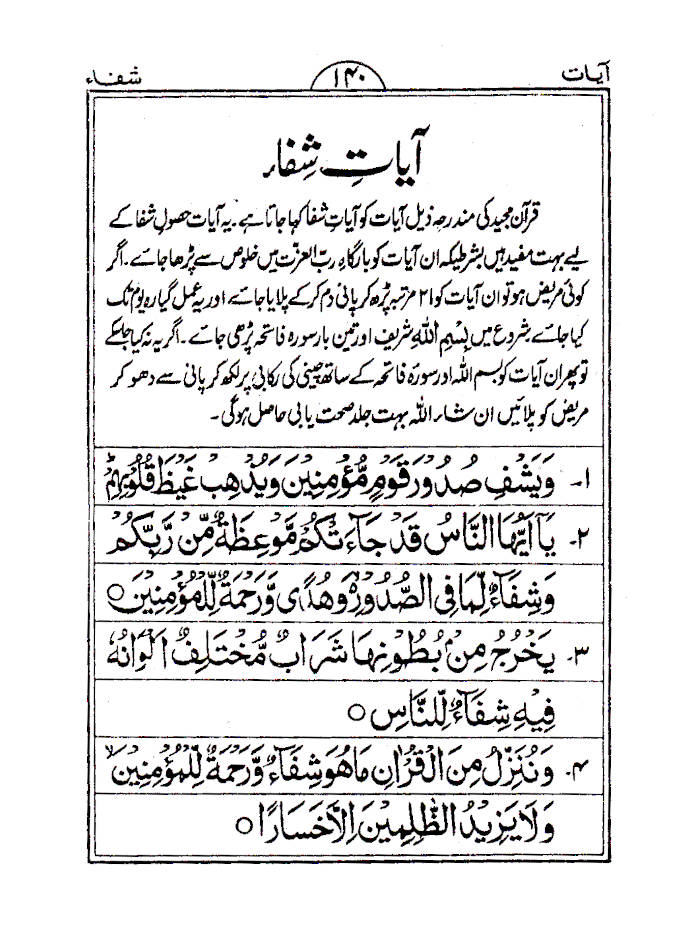 آیات
۱۴۰
شفاء
آیاتِ شِفاء
قرآن مجید کی مندرجہ ذیل آیات کو آیاتِ شفا کہا جاتا ہے۔ یہ آیات حصولِ شفا کے
لیے بہت مفید ہیں بشرطیکہ ان آیات کو بارگاہِ ربّ العزت میں خلوص سے پڑھا جائے۔ اگر
کوئی مریض ہو تو ان آیات کو ۲۱ مرتبہ پڑھ کر پانی دم کر کے پلایا جائے اور یہ عمل گیارہ یوم تک
کیا جائے شروع میں بِسْمِ اللهِ شریف اور تین بار سورہ فاتحہ پڑھی جائے۔ اگر یہ نہ کیا جاسکے
تو پھر ان آیات کو بسم اللہ اور سورۃ فاتحہ کے ساتھ چینی کی رکابی پر لکھ کر پانی سے دھو کر
مریض کو پلائیں ان شاء اللہ بہت جلد صحت یابی حاصل ہوگی۔
۱۔ وَيَشْفِ صُدُوْرَ قَوْمٍ مُّؤْمِنِيْنَ وَيُذْهِبْ غَيْظَ قُلُوْبِهِمْ ؕ
۲۔ يَآ اَيُّهَا النَّاسُ قَدْ جَآءَتْكُمْ مَّوْعِظَةٌ مِّنْ رَّبِّكُمْ
وَشِفَآءٌ لِّمَا فِى الصُّدُوْرِ ۙ وَهُدًى وَّرَحْمَةٌ لِّلْمُؤْمِنِيْنَ ○
۳۔ يَخْرُجُ مِنْۢ بُطُوْنِهَا شَرَابٌ مُّخْتَلِفٌ اَلْوَانُهٗ
فِيْهِ شِفَآءٌ لِّلنَّاسِ ○
۴۔ وَنُنَزِّلُ مِنَ الْقُرْاٰنِ مَا هُوَ شِفَآءٌ وَّرَحْمَةٌ لِّلْمُؤْمِنِيْنَ ۙ
وَلَا يَزِيْدُ الظّٰلِمِيْنَ اِلَّا خَسَارًا ○